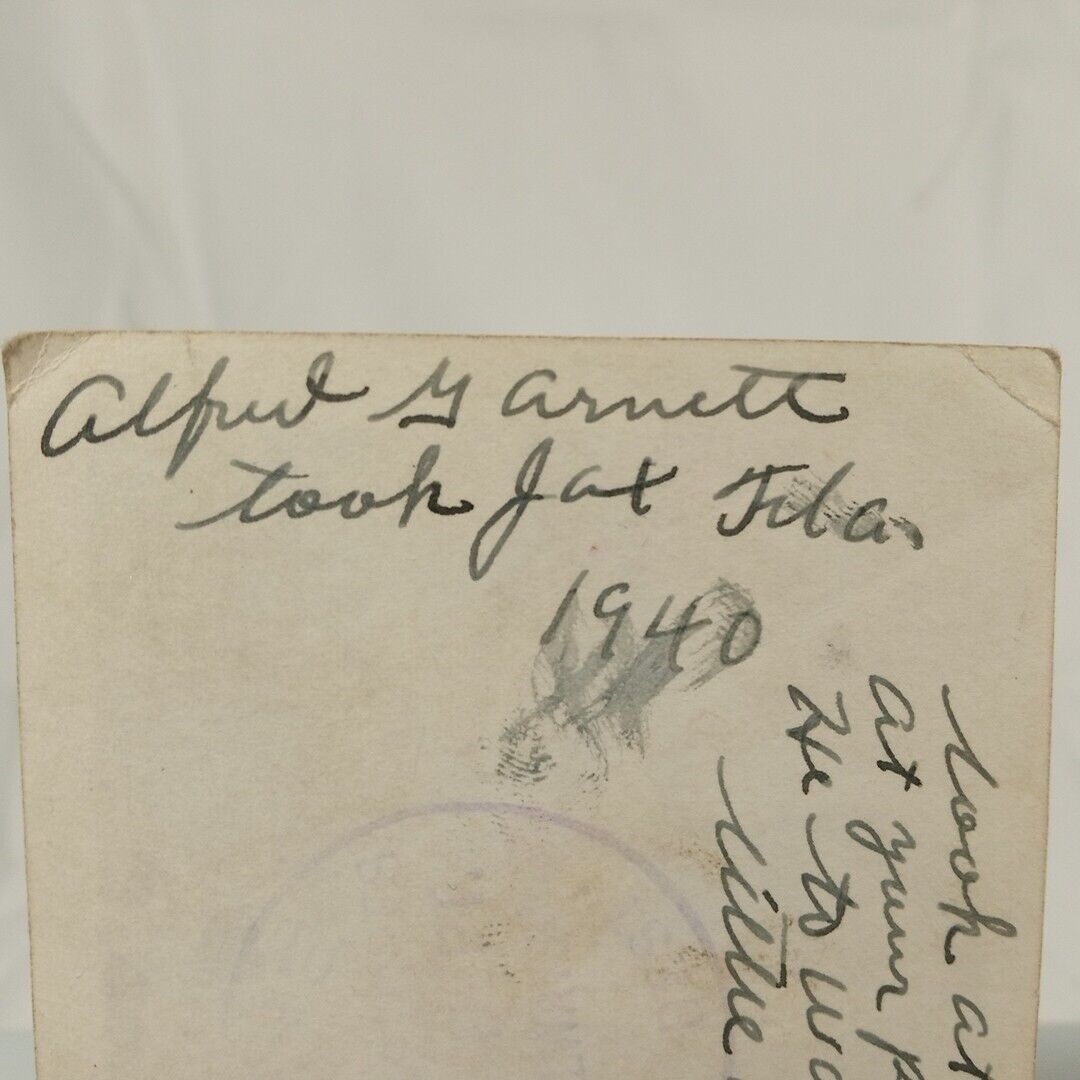 Alfred G Arnett
took Jax Fla.
1940
Look at
at your
He to
little